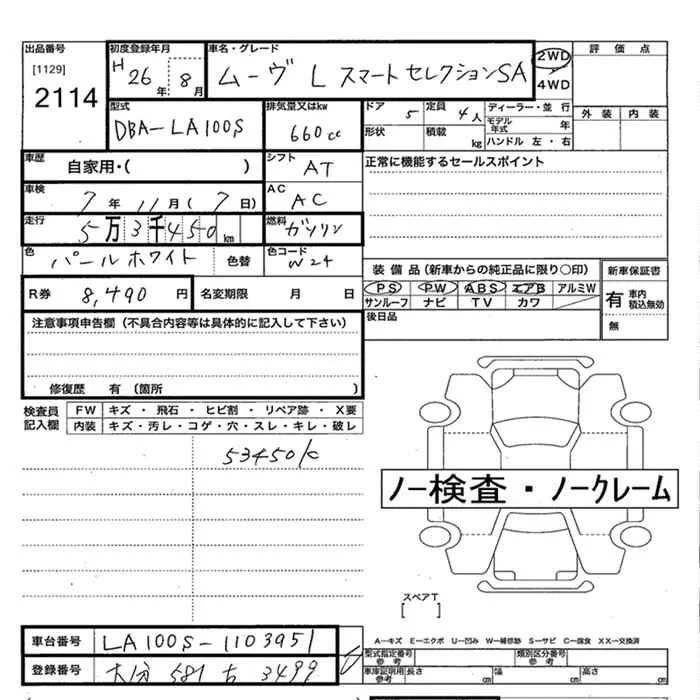 出品番号 初度登録年月 車名・グレード 評価点
[1129] H 26年 8月 ムーヴ L スマートセレクションSA 2WD
2114 4WD 外装 内装
型式 排気量又はkw ドア 定員 ディーラー・並行
DBA-LA100S 660cc 5 4人 モデル年式 年
形状 積載 kg ハンドル 左・右
車歴 自家用・( ) シフト AT 正常に機能するセールスポイント
車検 7年 11月 (7日) AC AC
走行 5万3千450km 燃料 ガソリン
色 パールホワイト 色替 色コード W24
装備品(新車からの純正品に限り○印) 新車保証書
R券 8,490円 名変期限 月 日 PS PW ABS エアB アルミW 有 車内 積込無効
サンルーフ ナビ TV カワ 無
注意事項申告欄(不具合内容等は具体的に記入して下さい) 後日品
修復歴 有 (箇所 )
検査員記入欄 FW キズ・飛石・ヒビ割・リペア跡・X要
内装 キズ・汚レ・コゲ・穴・スレ・キレ・破レ
53450K
ノー検査・ノークレーム
スペアT
[ ]
車台番号 LA100S-1103951 A-キズ E-エクボ U-凹み W-補修跡 S-サビ C-腐食 XX-交換済
登録番号 大分 581 ち 3499 型式指定番号 参考 類別区分番号 参考
車庫証明用 参考 長さ cm 幅 cm 高さ cm